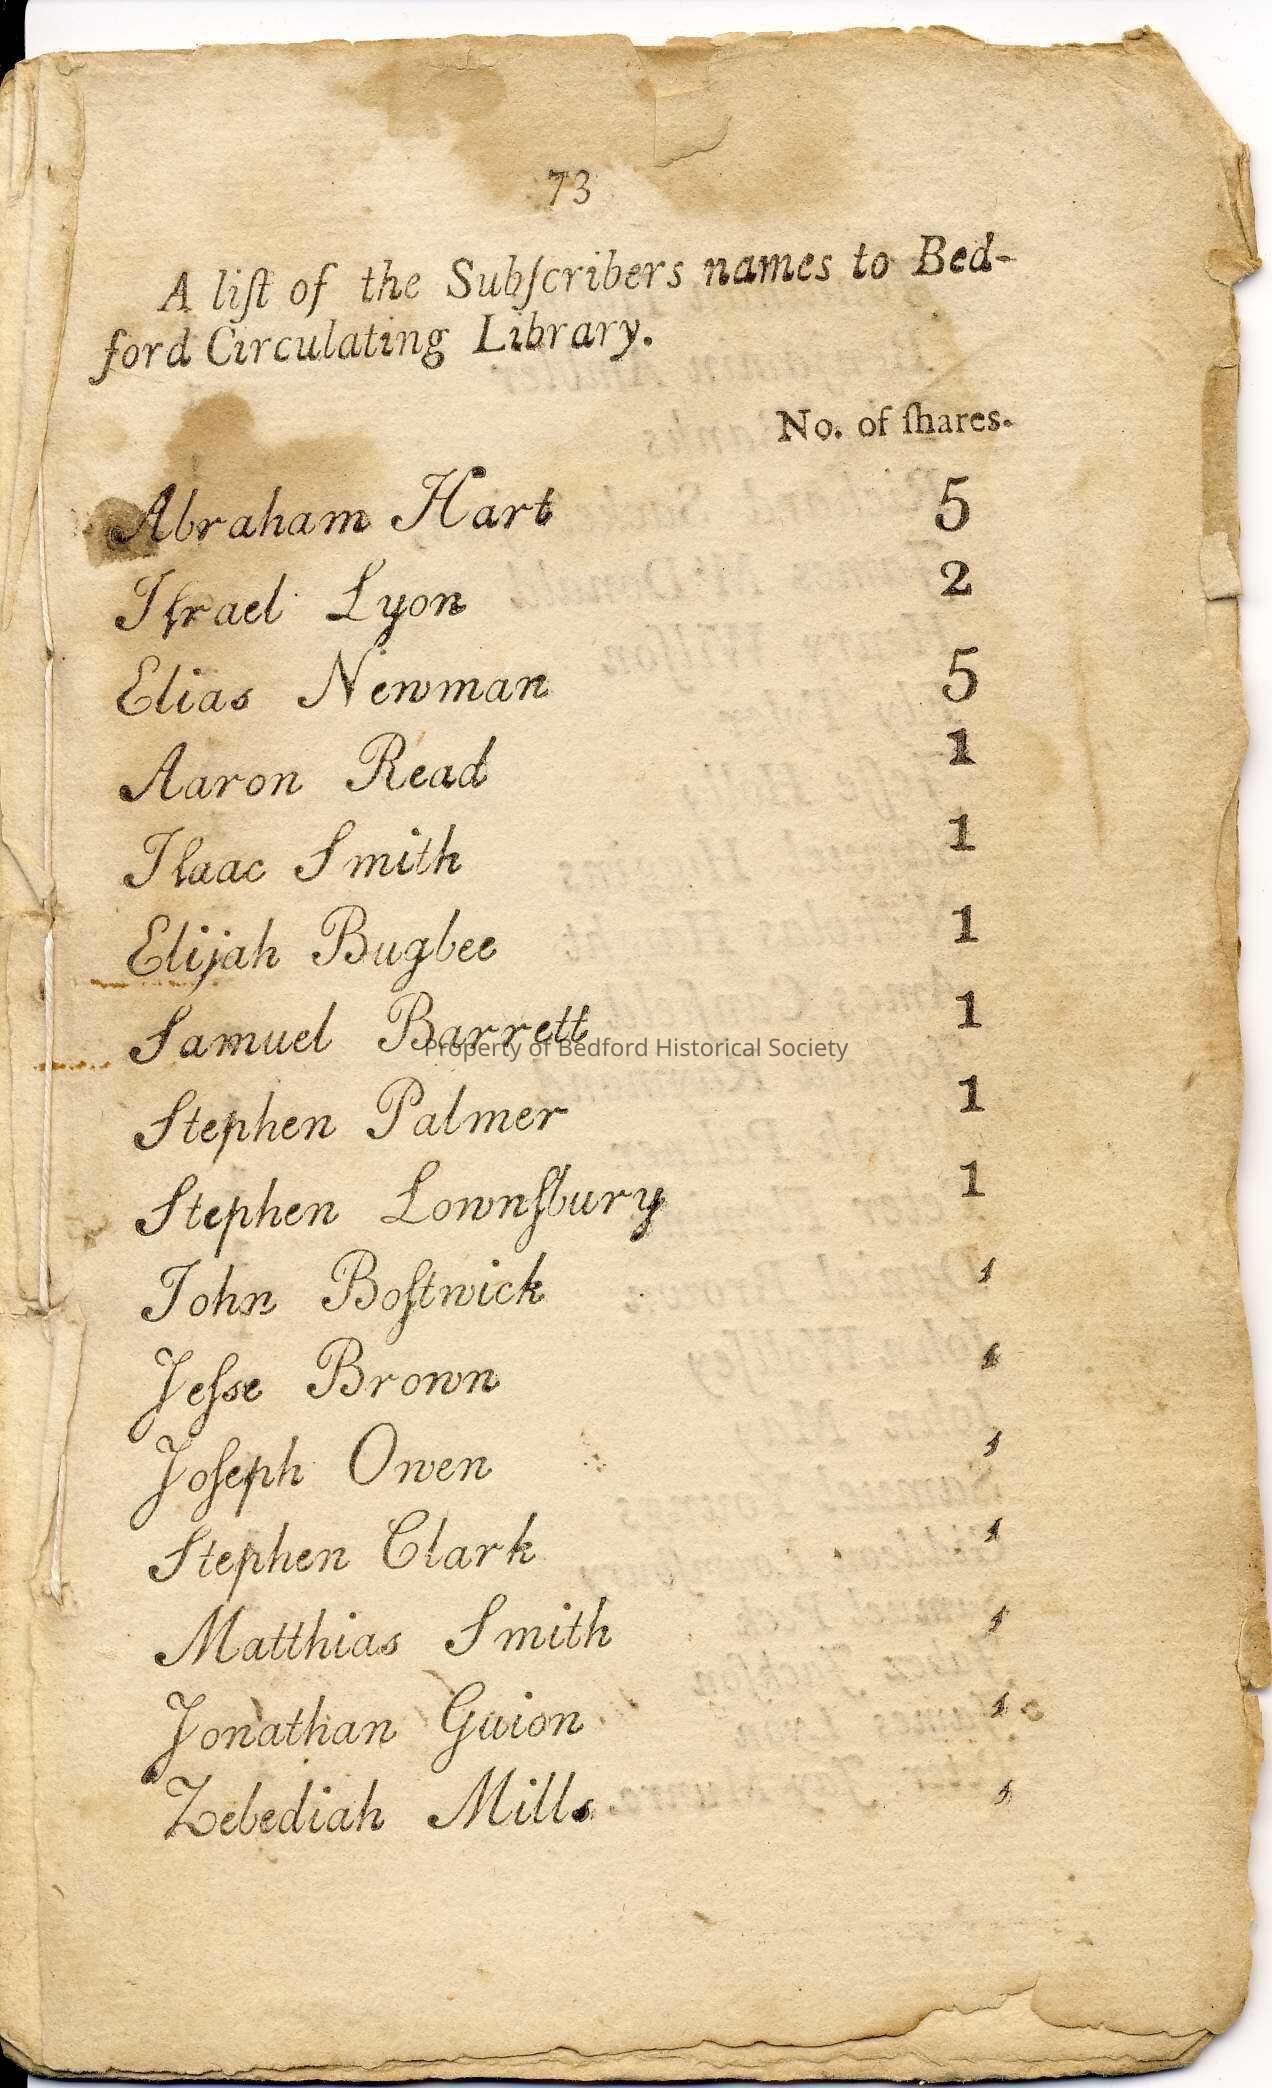 73
A liſt of the Subſcribers names to Bed-
ford Circulating Library.
No. of ſhares.
Abraham Hart 5
Iſrael Lyon 2
Elias Newman 5
Aaron Read 1
Iſaac Smith 1
Elijah Bugbee 1
Samuel Barrett 1
Property of Bedford Historical Society
Stephen Palmer 1
Stephen Lownſbury 1
John Boſtwick 1
Jeſse Brown 1
Joſeph Owen 1
Stephen Clark 1
Matthias Smith 1
Jonathan Guion 1
Zebediah Mills. 1